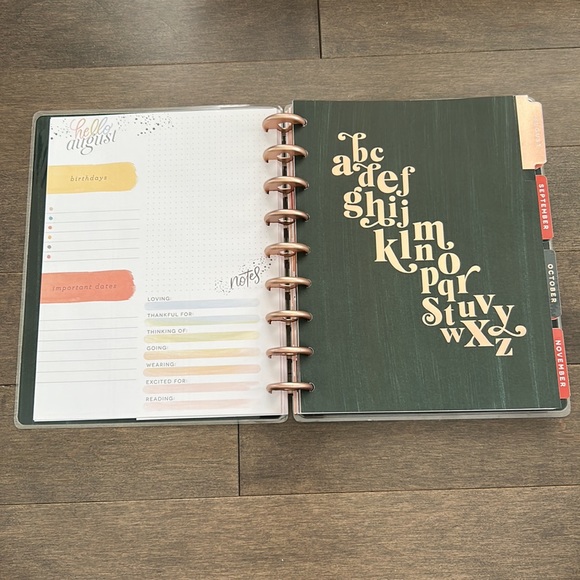 hello
august
birthdays
important dates
notes
LOVING:
THANKFUL FOR:
THINKING OF:
GOING:
WEARING:
EXCITED FOR:
READING:
abc
def
ghij
klm
no
pqr
stuvy
wxz
SEPTEMBER
OCTOBER
NOVEMBER